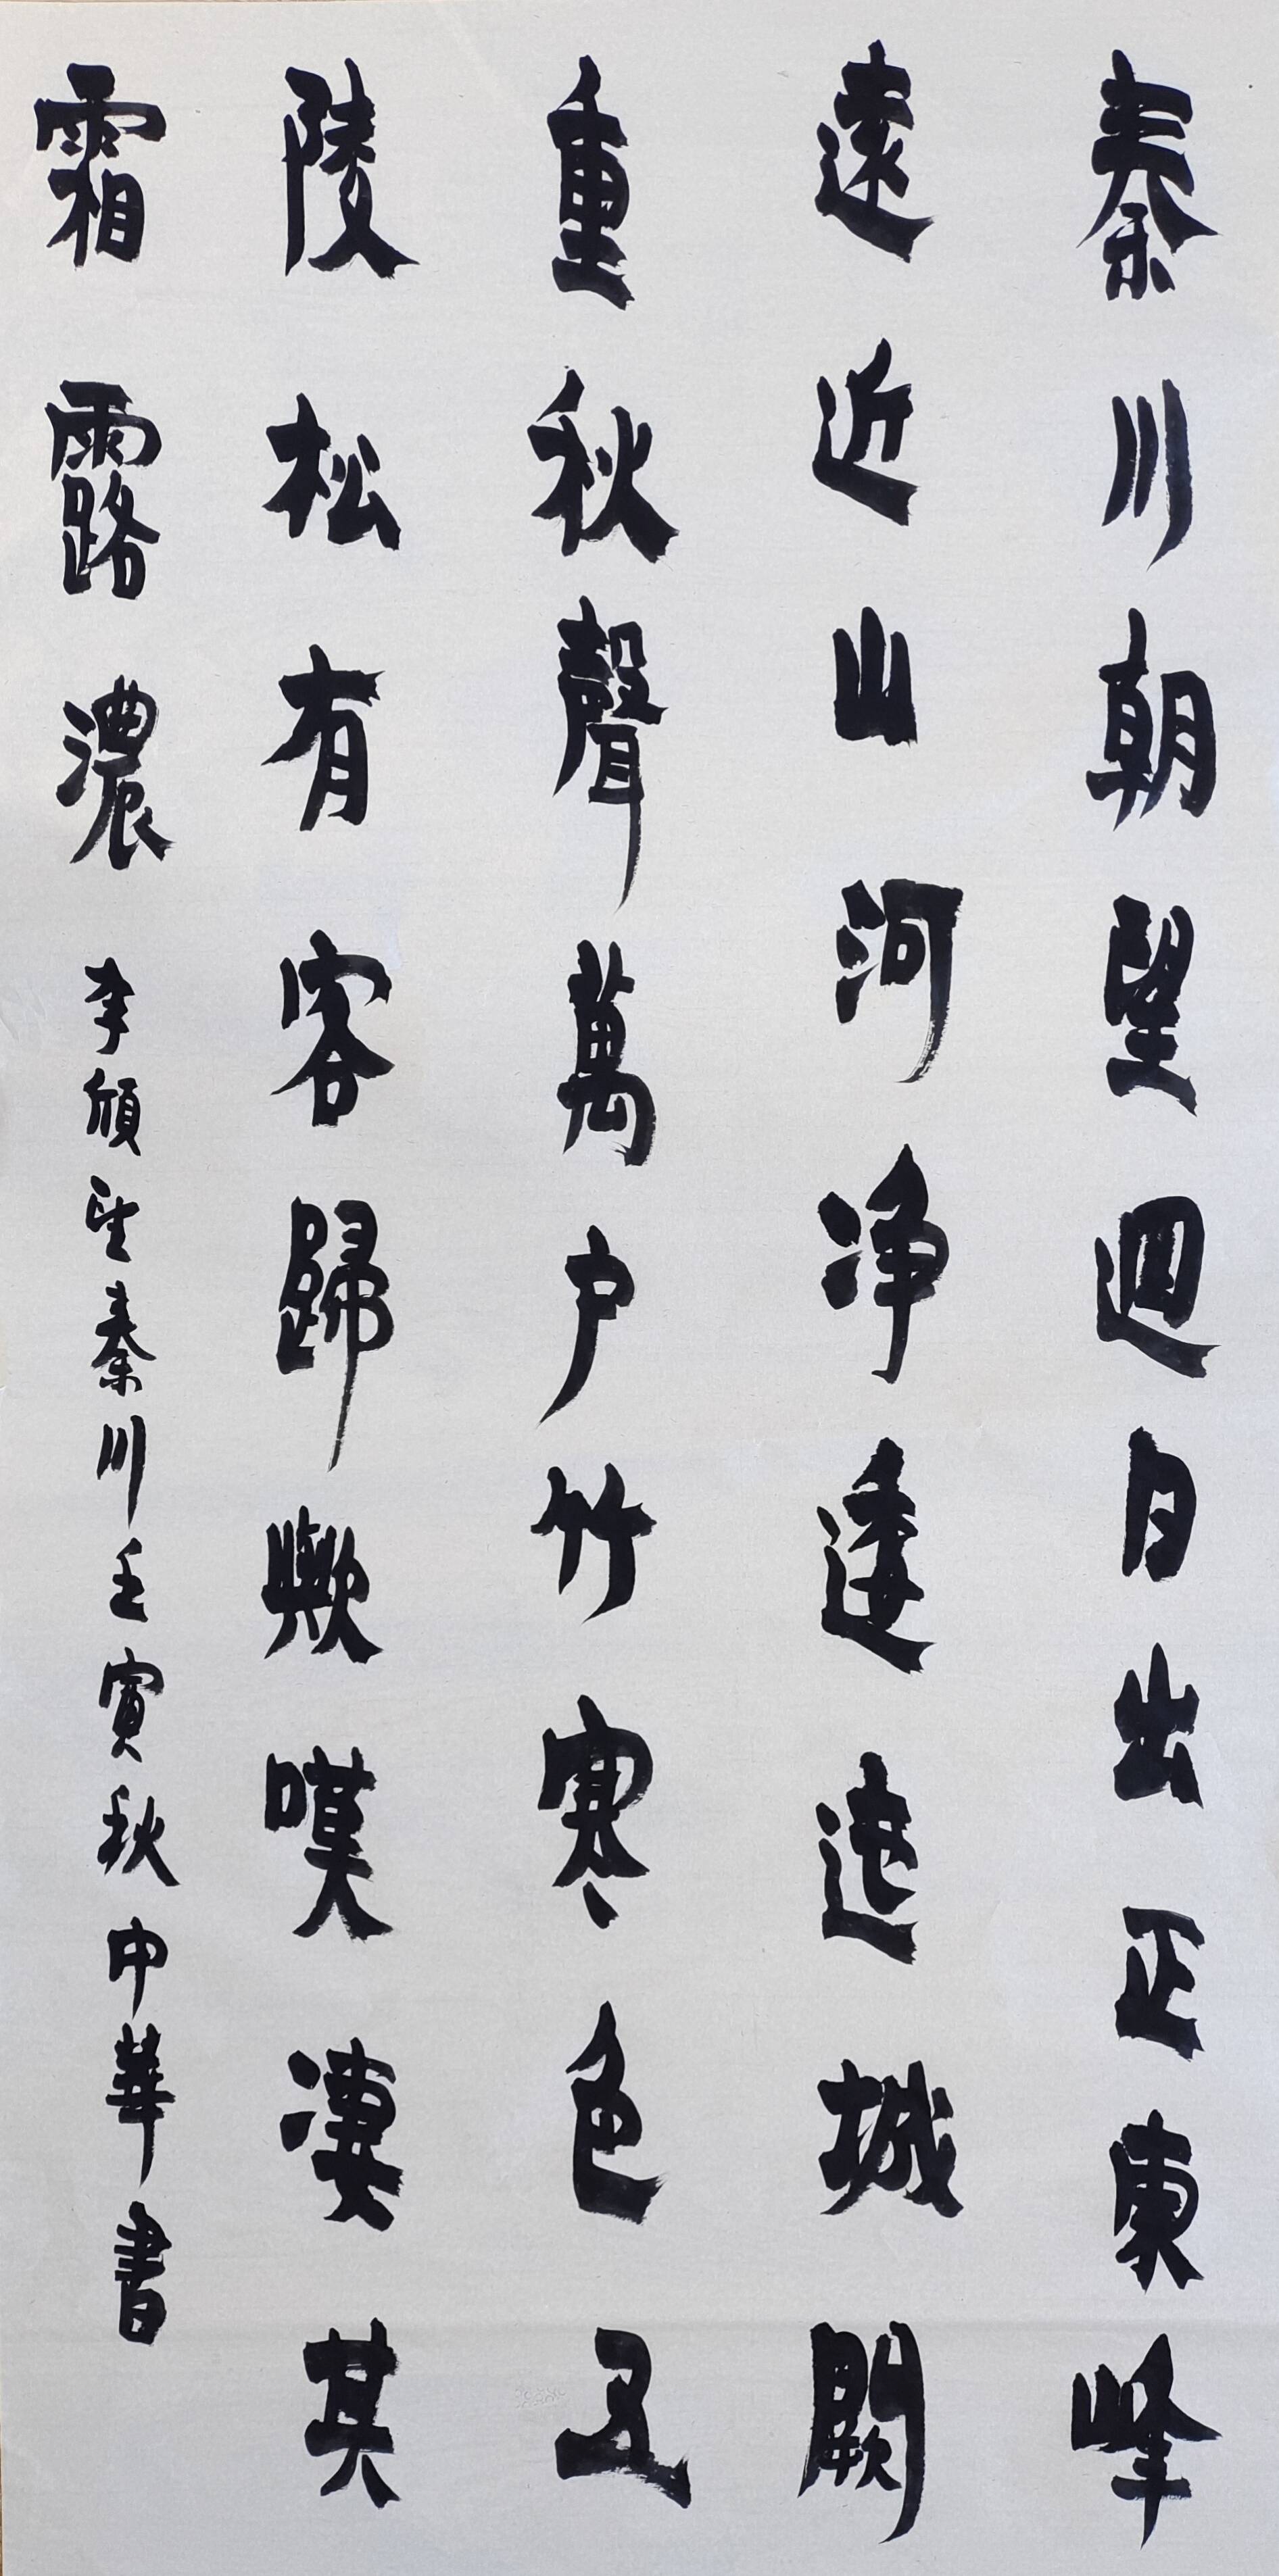 秦川朝望迥日出正東峰
遠近山河净逶迤城闕
重秋聲萬户竹寒色五
陵松有客歸歟嘆凄其
霜露濃
李頎望秦川壬寅秋中華書